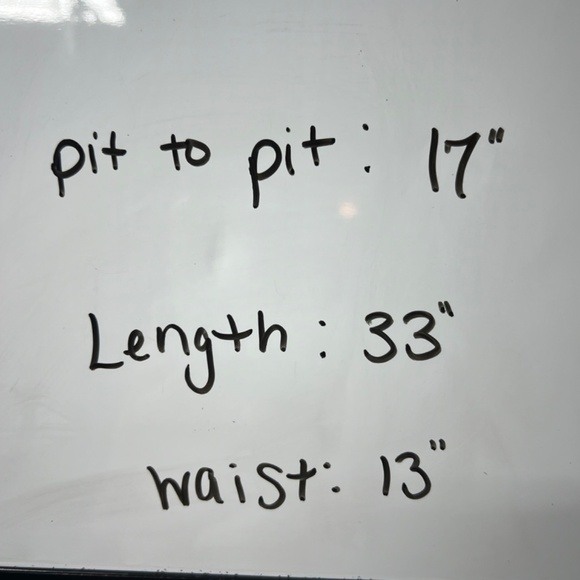 pit to pit: 17"
Length: 33"
waist: 13"